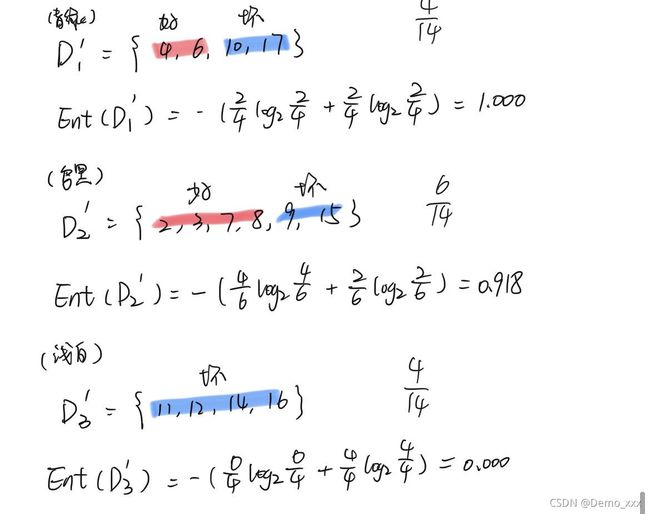 (青绿) 好 坏 4/14
D₁' = { 4, 6, 10, 17 }
Ent(D₁') = - (2/4 log₂ 2/4 + 2/4 log₂ 2/4) = 1.000
(乌黑) 好 坏 6/14
D₂' = { 2, 3, 7, 8, 9, 15 }
Ent(D₂') = - (4/6 log₂ 4/6 + 2/6 log₂ 2/6) = 0.918
(浅白) 坏 4/14
D₃' = { 11, 12, 14, 16 }
Ent(D₃') = - (0/4 log₂ 0/4 + 4/4 log₂ 4/4) = 0.000
CSDN @Demo_xxx